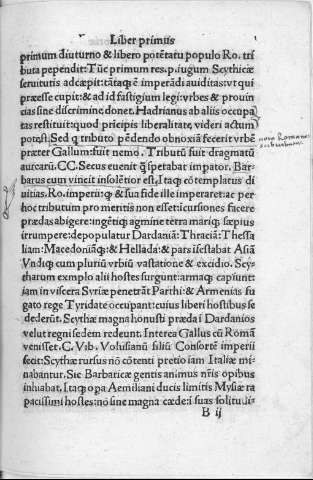 Liber primus
primum diuturno & libero potētatu populo Ro. tri
buta pependit: Tūc primum res. p. iugum Scythicæ
seruitutis adcæpit: tātaq̄ē imperādi auiditas: vt qui
præesse cupit: & ad id fastigium legi: vrbes & prouin
cias sine discrimine donet. Hadrianus ab aliis occupa
tas restituit: quod pricipis liberalitate, videri actum
potest: Sed q̨ tributo pēdendo obnoxiā fecerit vrbē
præter Gallum: fuit nemo. Tributū fuit dragmatū
aureorū. CC. Secus euenit q̄ sperabat impator. Bar-
barus eum vincit insolētior est, Itaq̨ cōtemplatus di
uitias. Ro. imperii: q̨ & sua fide ille imperaret: ac per
hoc tributum pro meritis non esset: icursiones facere
prædas abigere: ingētiq̨ agmine terra mariq̨ sæpius
irrumpere: depopulatur Dardaniā: Thraciā: Thessa
liam: Macedoniāq̨: & Hellada: & pars isestabat Asiā
Vndiq̨ cum pluriū vrbiū vastatione & excidio. Scy-
tharum exmplo alii hostes surgunt: armaq̨ capiunt:
iam in viscera Syriæ penetrāt Parthi: & Armenias fu
gato rege Tyridate occupant: cuius liberi hostibus se
dederūt. Scythæ magna honusti præda i Dardanios
velut regni sedem redeunt. Interea Gallus cū Romā
venisset. C. Vib. Volusianū filiū Consortē imperii
fecit: Scythæ rursus nō cōtenti pretio iam Italiæ mi-
nabantur. Sic Barbaricæ gentis animus nr̄is opibus
inhiabat. Itaq̨ opa Aemiliani ducis limitis Mysiæ ra
pacissimi hostes: nō sine magna cæde: i suas solitudi-
B ij